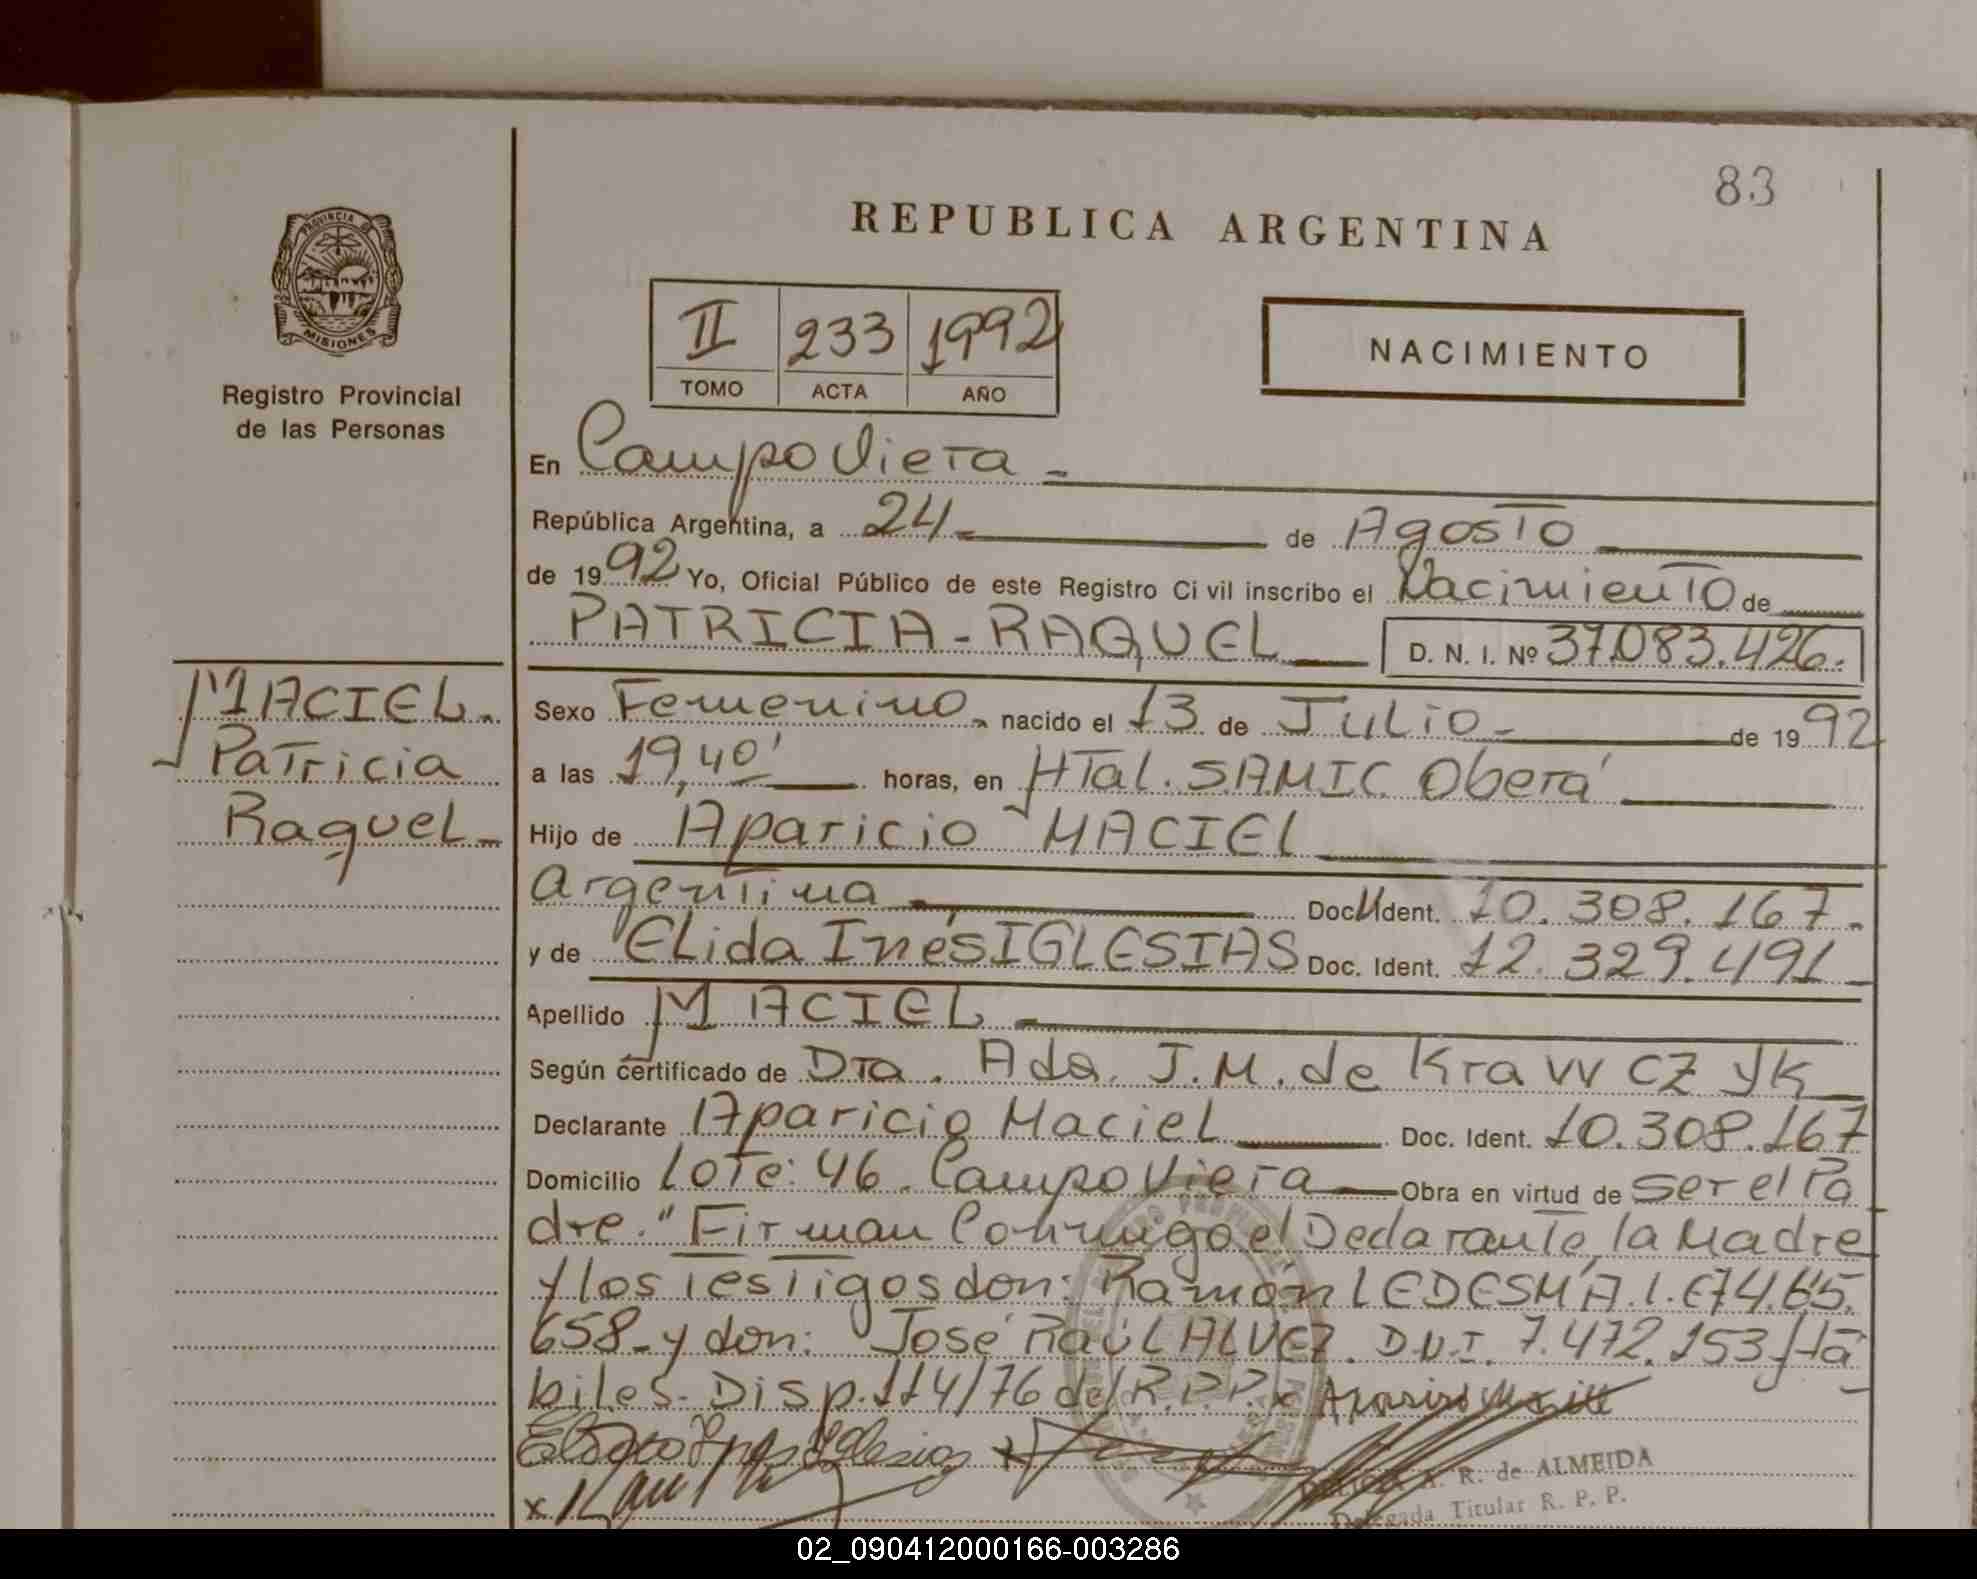 83
REPUBLICA ARGENTINA
PROVINCIA DE
MISIONES
Registro Provincial
de las Personas
II 233 1992
TOMO ACTA AÑO
NACIMIENTO
En Campo Viera -
República Argentina, a 24 de Agosto
de 1992 Yo, Oficial Público de este Registro Ci vil inscribo el Nacimiento de
PATRICIA - RAQUEL D. N. I. Nº 37.083.426.
MACIEL.
Patricia
Raquel
Sexo Femenino nacido el 13 de Julio de 1992
a las 19,40' horas, en Htal. SAMIC. Oberá
Hijo de Aparicio MACIEL
Argentina Doc. Ident. 10.308.167.
y de Elida Inés IGLESIAS Doc. Ident. 12.329.491
Apellido MACIEL
Según certificado de Dra. Ada. J.M. de Krawczyk
Declarante Aparicio Maciel Doc. Ident. 10.308.167
Domicilio Lote: 46. Campo Viera Obra en virtud de ser el Pa
dre. "Firman Conmigo el Declarante, la Madre
y los Testigos don: Ramón LEDESMA. L.E 7.465.
658 - y don: José Raúl ALVEZ. D.N.I. 7.472.153 Há
biles. Disp. 114/76 del R.P.P. x Aparicio Maciel
Inés Iglesias
A. R. de ALMEIDA
Delegada Titular R. P. P.
02_090412000166-003286